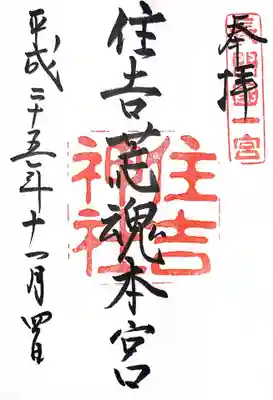 奉拝
長門国一宮
住吉荒魂本宮
住吉神社
平成二十五年十一月四日